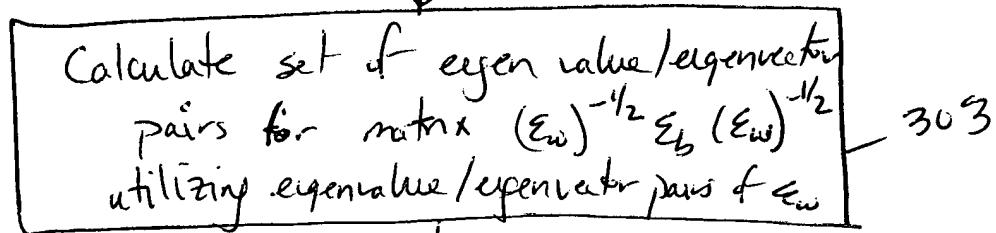 Calculate set of eigen value/eigenvector
pairs for matrix (Σw)^-1/2 Σb (Σw)^-1/2
utilizing eigenvalue/eigenvector pairs of Σw
303